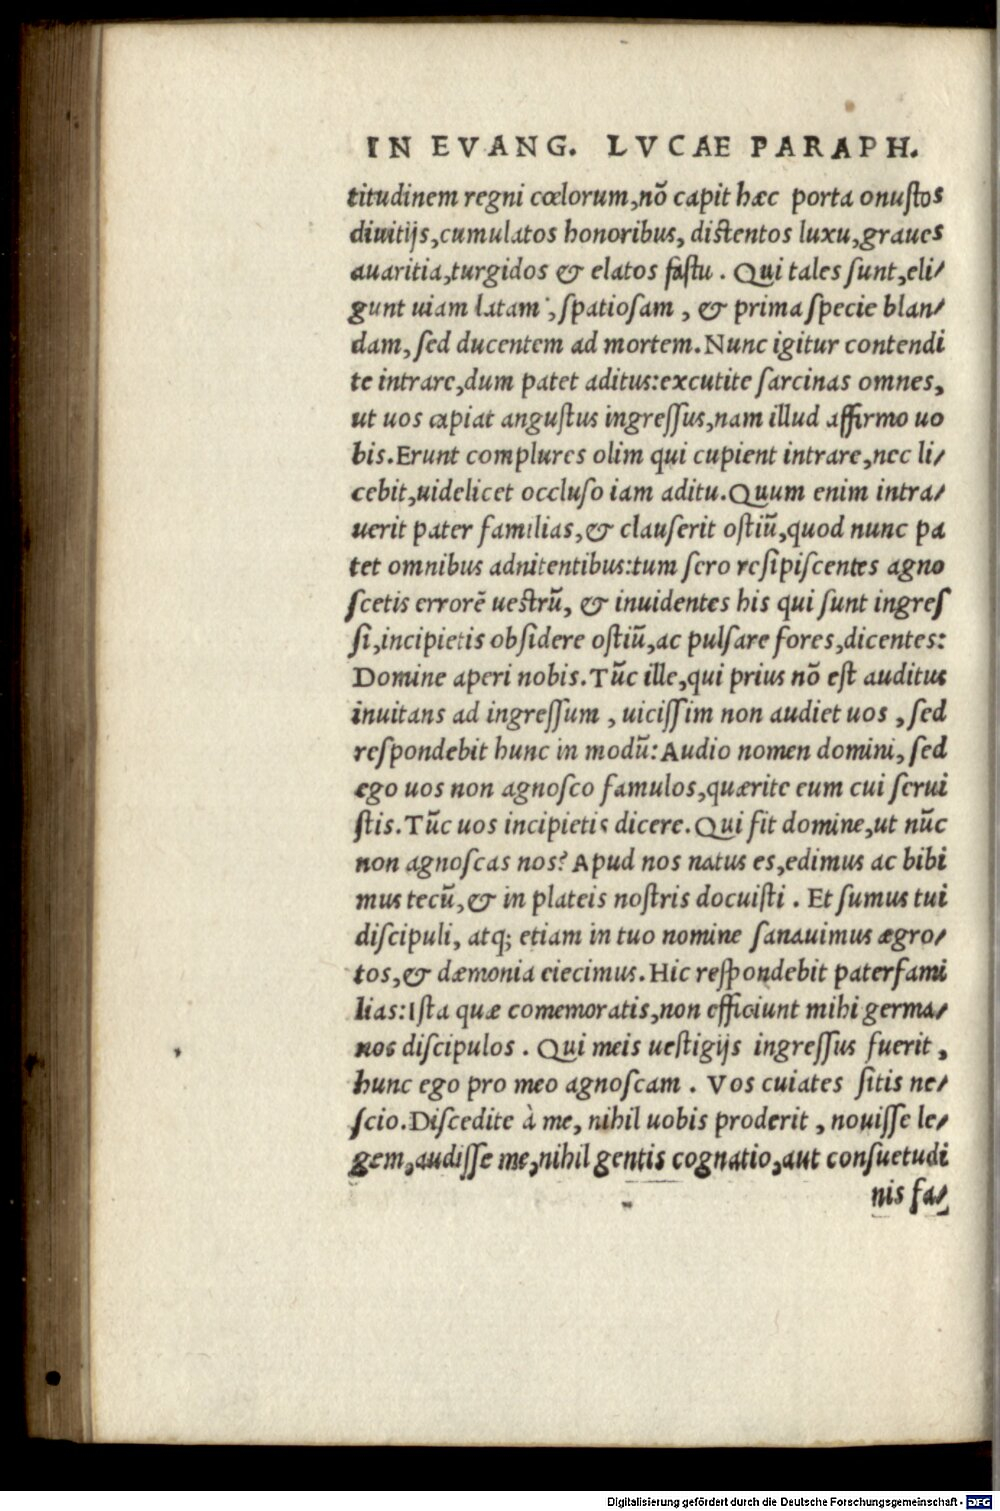 IN EVANG. LVCAE PARAPH.
titudinem regni cœlorum,nõ capit hæc porta onuſtos
diuitijs,cumulatos honoribus, distentos luxu,graues
auaritia,turgidos & elatos faſtu . Qui tales ſunt,eli⸗
gunt uiam latam , ſpatioſam , & prima ſpecie blan⸗
dam, ſed ducentem ad mortem. Nunc igitur contendi
te intrare,dum patet aditus:excutite ſarcinas omnes,
ut uos capiat anguſtus ingreſſus,nam illud affirmo uo
bis. Erunt complures olim qui cupient intrare,nec li⸗
cebit,uidelicet occluſo iam aditu. Quum enim intra⸗
uerit pater familias,& clauſerit oſtiũ,quod nunc pa
tet omnibus adnitentibus:tum ſero reſipiſcentes agno
ſcetis errorẽ uestrũ, & inuidentes his qui ſunt ingreſ
ſi,incipietis obſidere oſtiũ,ac pulſare fores,dicentes:
Domine aperi nobis. Tũc ille,qui prius nõ eſt auditus
inuitans ad ingreſſum , uiciſſim non audiet uos , ſed
reſpondebit hunc in modũ: Audio nomen domini, ſed
ego uos non agnoſco famulos,quærite eum cui ſerui
ſtis. Tũc uos incipietis dicere. Qui fit domine,ut nũc
non agnoſcas nos? Apud nos natus es,edimus ac bibi
mus tecũ,& in plateis noſtris docuiſti . Et ſumus tui
diſcipuli, atq; etiam in tuo nomine ſanauimus ægro⸗
tos,& dæmonia eiecimus. Hic reſpondebit paterfami
lias: Iſta quæ comemoratis,non efficiunt mihi germa⸗
nos diſcipulos . Qui meis uestigijs ingreſſus fuerit ,
hunc ego pro meo agnoſcam . Vos cuiates ſitis ne⸗
ſcio. Diſcedite à me, nihil uobis proderit , nouiſſe le⸗
gem,audiſſe me,nihil gentis cognatio,aut conſuetudi
nis fa⸗
Digitalisierung gefördert durch die Deutsche Forschungsgemeinschaft - DFG